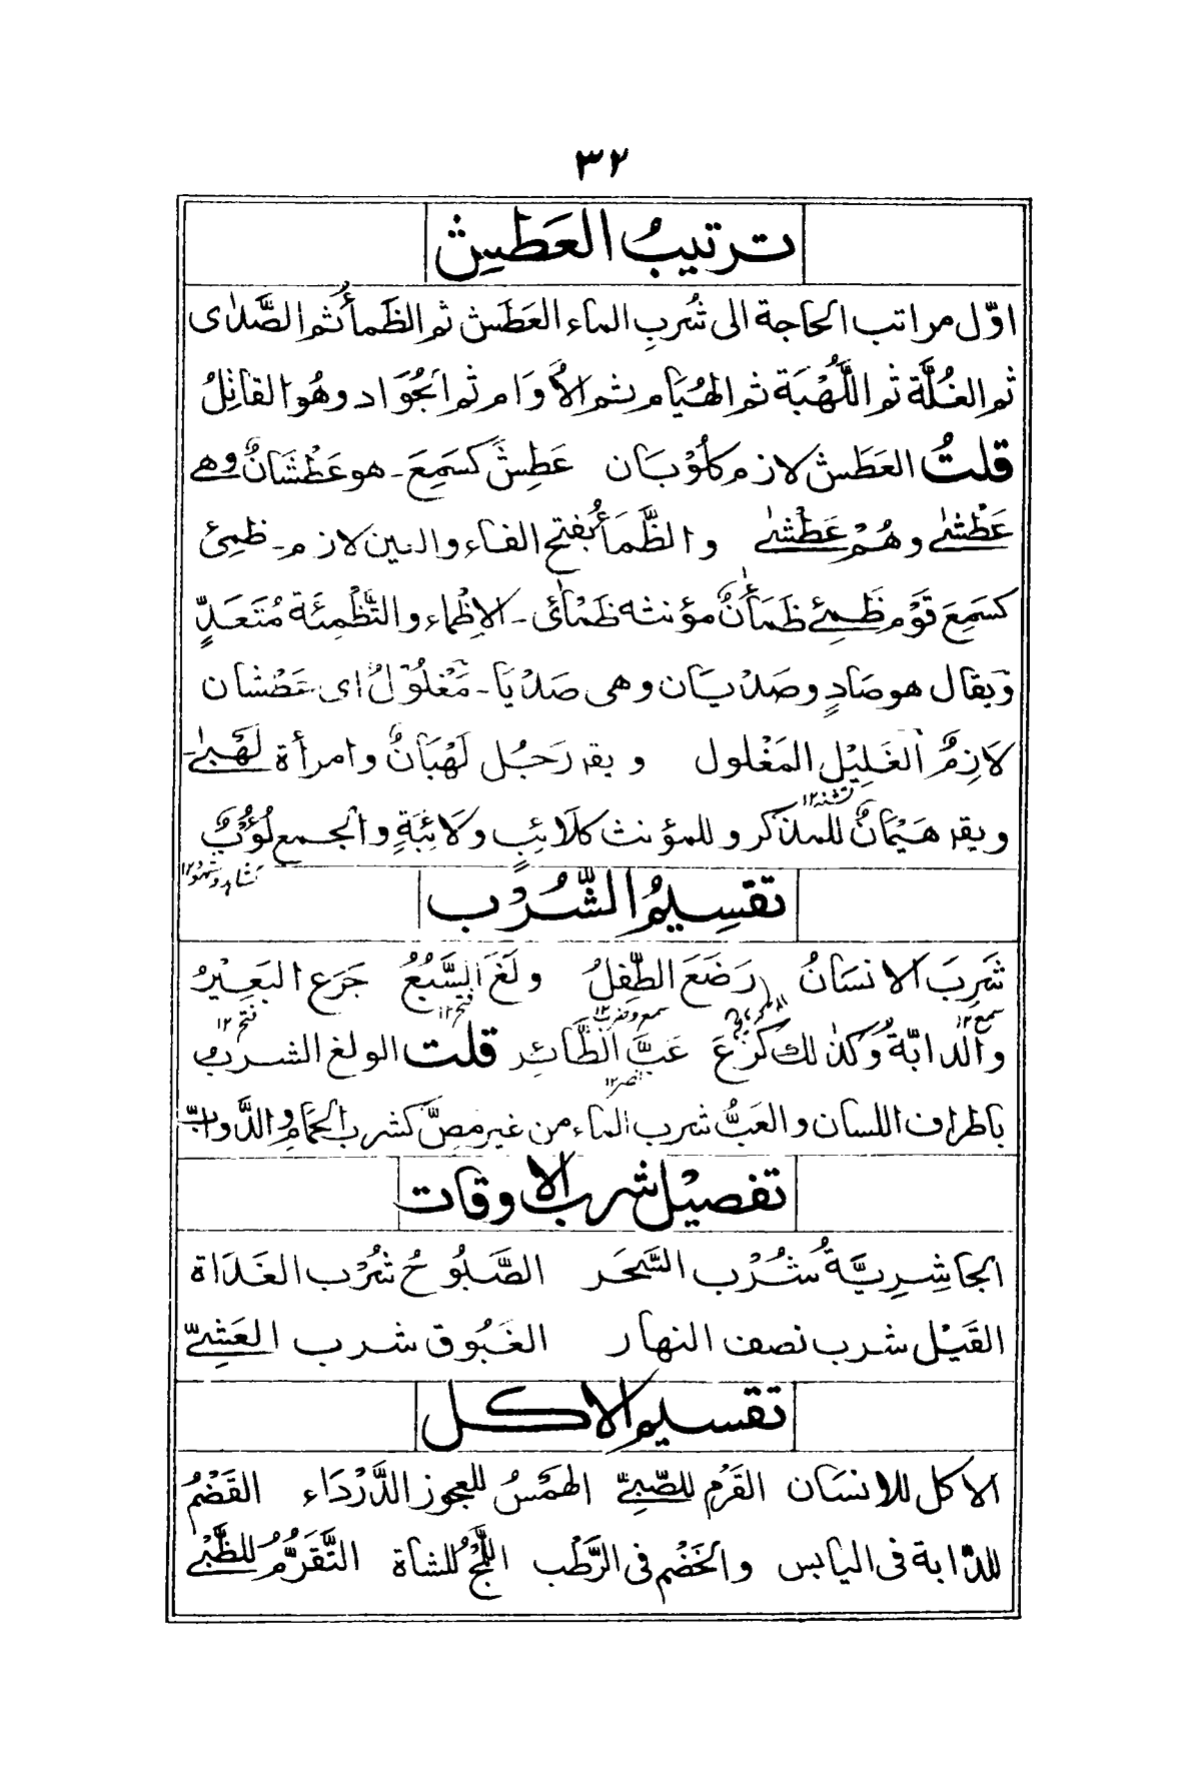 ٣٢
ترتيبُ العَطَشِ
اوّل مراتب الحاجة الى شُربِ الماء العَطَش ثم الظَمأُ ثم الصَّدٰى
ثم الغُلَّة ثم اللُّهْبَة ثم الهُيَام ثم الأُوَام ثم الجُوَاد وهُو القاتِلُ
قلتُ العَطَش لازم كلُوْبَان عَطِشَ كسَمِعَ - هو عَطْشَانُ وهى
عَطْشٰى وهُمْ عَطْشٰى والظَّمَأُ بفتح الفاء والعين لازم - ظمِئ
كسَمِعَ قَوْم ظَمِئى ظَمَأٰنُ مؤنثه ظَمْأٰى - الاِظْماء والتَّظْمِئَة مُتَعَدٍّ
وَيقال هو صَادٍ وصَدْيَان وهى صَدْيَا - مَغْلُوْلٌ اى عَطْشان
لَازِمٌ الغَلِيْل المَغْلول ويقـ رَجُل لَهْبَانُ وامرأة لَهْبٰى -
ويقـ هَيْمَانُ للمذكر وللمؤنث كلَائبٍ ولَائِبَةٍ والجمع لُؤُبٌ
تشنه١٢
تقسِيمُ الشُّرْب
شَرِبَ الانسَانُ رَضَعَ الطِّفْلُ ولَغَ السَّبُعُ جَرَع البَعِيْرُ
سمع١٢ سمع وضرب١٢ فتح١٢ فتح١٢
والدابّةُ وَكذٰلك كَرَعَ عَبَّ الطَّائِر قلت الولغ الشرب
نصر١٢
باطراف اللسان والعَبُّ شرب الماء من غير مصٍّ كشرب الحَمَام والدَّوابّ
تفصيْل شرب الاوقات
الجاشِرِيَّةُ شُرْب السَّحَر الصَّبُوحُ شُرْب الغَدَاة
القَيْل شرب نصف النهار الغَبُوق شرب العَشِىّ
تقسيم الاكل
الاكل للانسَان القَرْم للصَّبِىّ الهَمْسُ للعجوز الدَّرْدَاء القَضْمُ
للدّابة فى اليابس والخَضْم فى الرَّطْب اللَّمْجُ للشاة التَّقَرُّمُ للظَّبْى